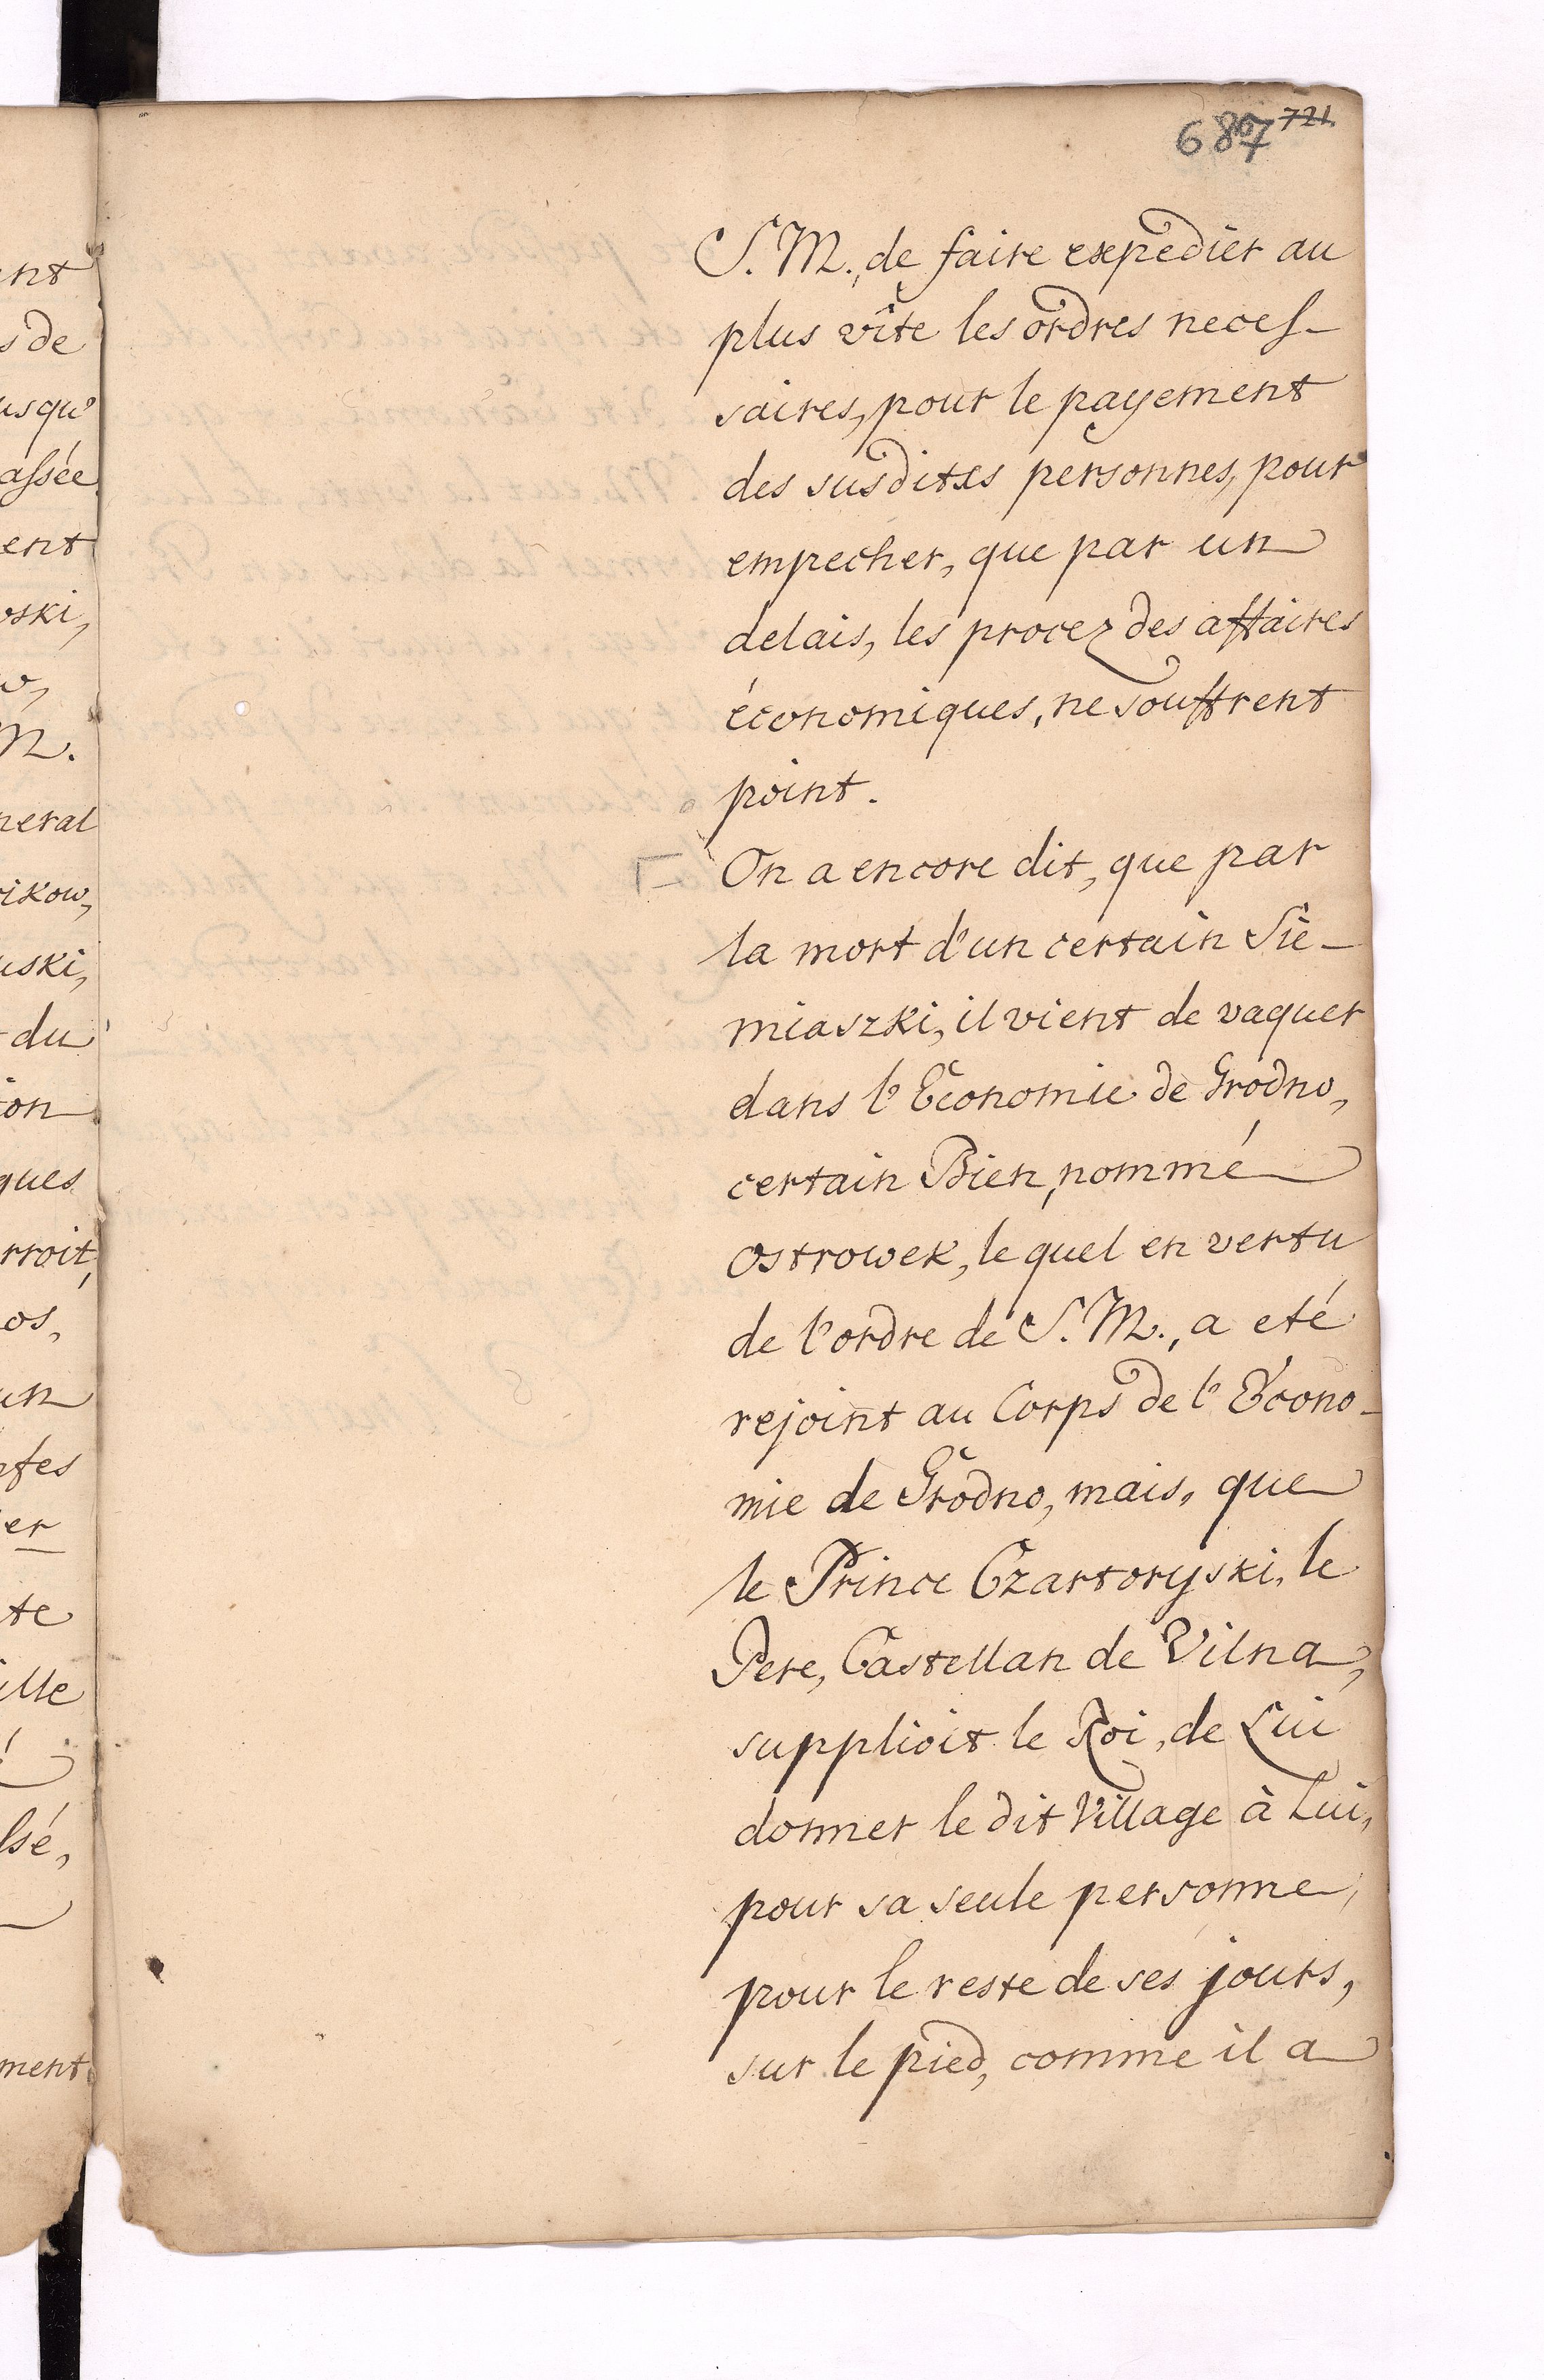 687 721.
S. M., de faire expedier au
plus vîte les ordres neces-
saires, pour le payement
des susdites personnes, pour
empecher, que par un
delais, les procez des affaires
économiques, ne souffrent
point.
On a encore dit, que par
la mort d'un certain Sie-
miaszki, il vient de vaquer
dans l'Economie de Grodno,
certain Bien, nommé
Ostrowek, le quel en vertu
de l'ordre de S. M., a eté
rejoint au Corps de l'Écono-
mie de Grodno, mais, que
le Prince Czartoryski, le
Pere, Castellan de Vilna,
supplioit le Roi, de Lui
donner le dit Village à Lui,
pour sa seule personne,
pour le reste de ses jours,
sur le pied, comme il a